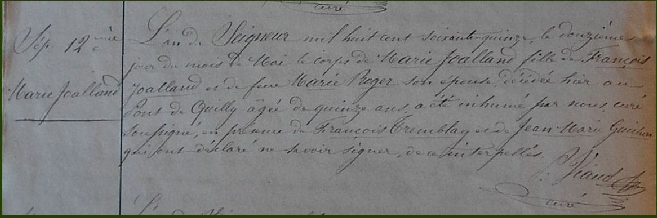 curé
Sép. 12ème
Marie Joalland
L'an du Seigneur mil huit cent soixante-quinze, le douzième
jour du mois de Mai le corps de Marie Joalland fille de François
Joalland et de feue Marie Roger son épouse décédée hier au
Pont de Quilly âgée de quinze ans, a été inhumé par nous, curé
soussigné, en présence de François Tremblay et de Jean-Marie
qui ont déclaré ne savoir signer, de ce interpellés.
curé
L'an du